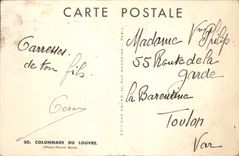 CARTE POSTALE
Carresses
de ton fils
Madame Vve Philip
55 Route de la
garde
la Barentine
Toulon
Var
30. COLONNADE DU LOUVRE.